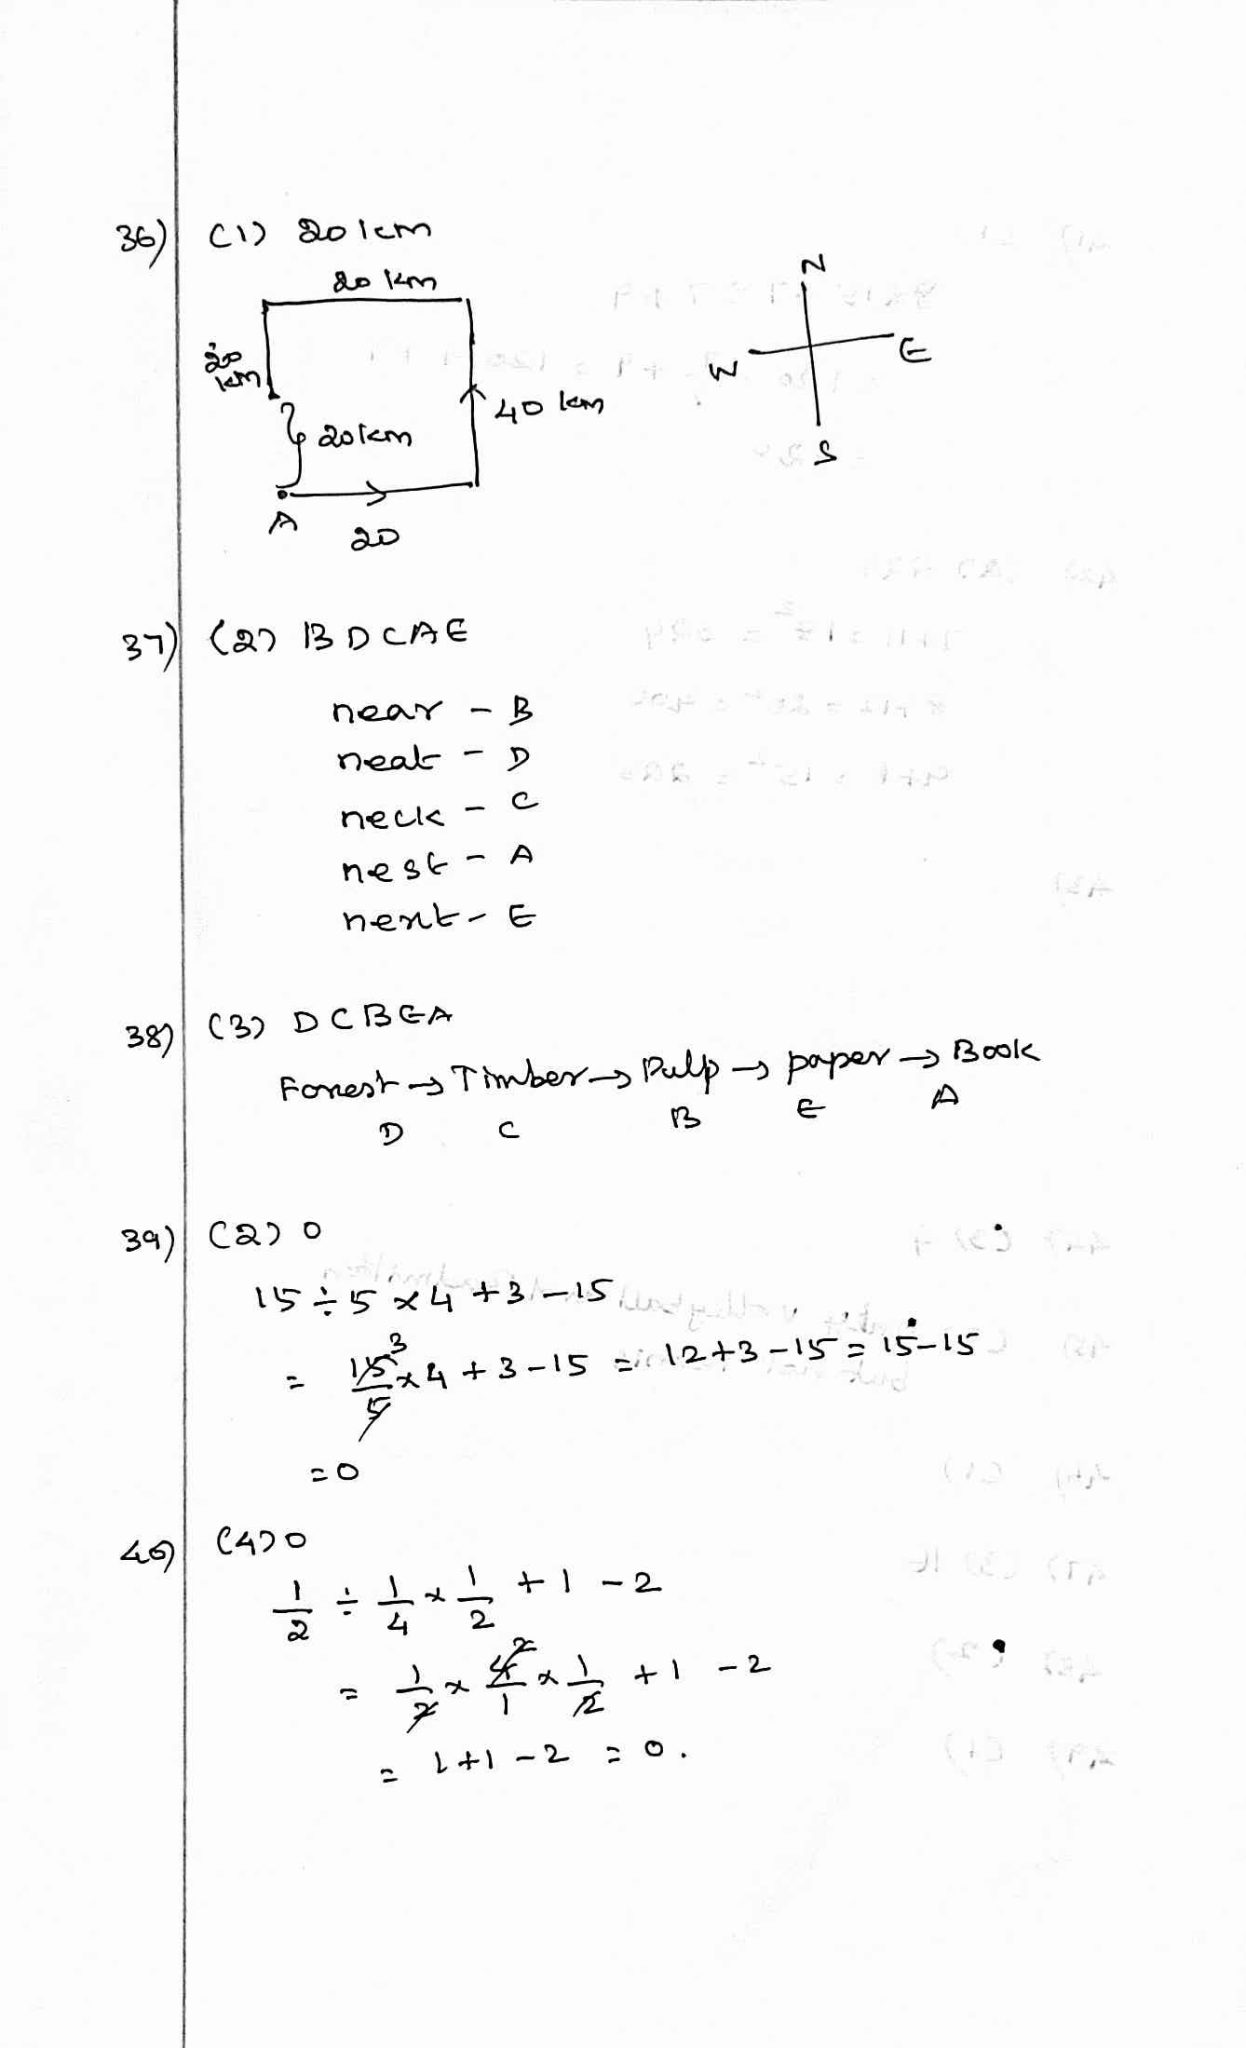 36) (1) 20 km
20 km
20 km
40 km
20 km
A
20
N
W E
S
37) (2) B D C A E
near - B
neat - D
neck - C
nest - A
next - E
38) (3) D C B E A
Forest → Timber → Pulp → paper → Book
D C B E A
39) (2) 0
15 ÷ 5 × 4 + 3 - 15
= 15/5 3 × 4 + 3 - 15 = 12 + 3 - 15 = 15 - 15
= 0
40) (4) 0
1/2 ÷ 1/4 × 1/2 + 1 - 2
= 1/2 × 4/1 2 × 1/2 + 1 - 2
= 1 + 1 - 2 = 0.